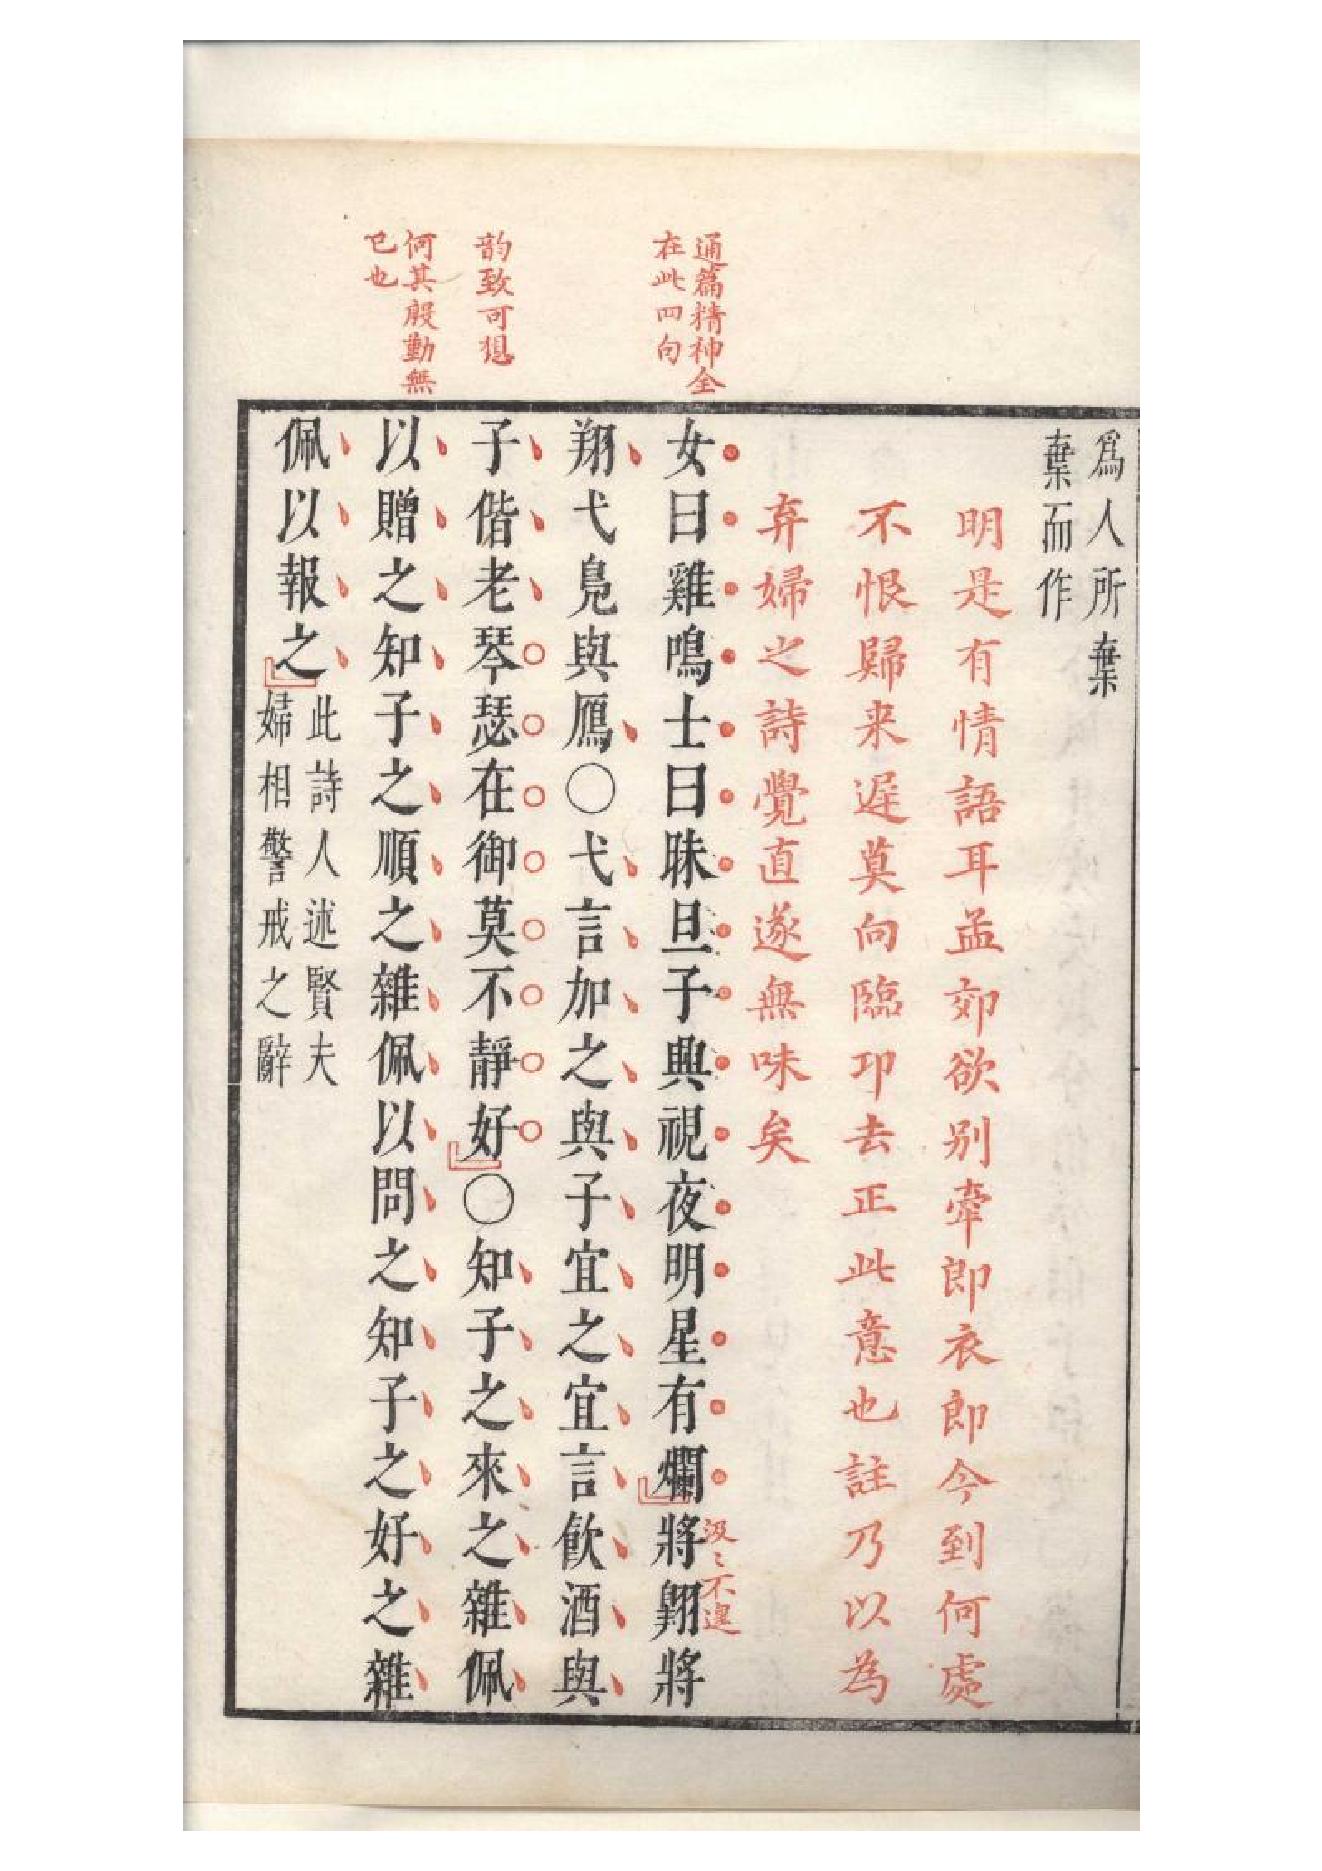 通篇精神全
在此四句
韵致可想
何其殷勤無
已也
爲人所棄
棄而作
明是有情語耳孟郊欲别牵郎衣郎今到何處
不恨歸来遲莫向臨邛去正此意也註乃以為
弃婦之詩覺直遂無味矣
女曰雞鳴士曰昧旦子興視夜明星有爛將翺將
汲〻不遑
翔弋鳧與鴈〇弋言加之與子宜之宜言飲酒與
子偕老琴瑟在御莫不靜好〇知子之來之雜佩
以贈之知子之順之雜佩以問之知子之好之雜
佩以報之
此詩人述賢夫
婦相警戒之辭